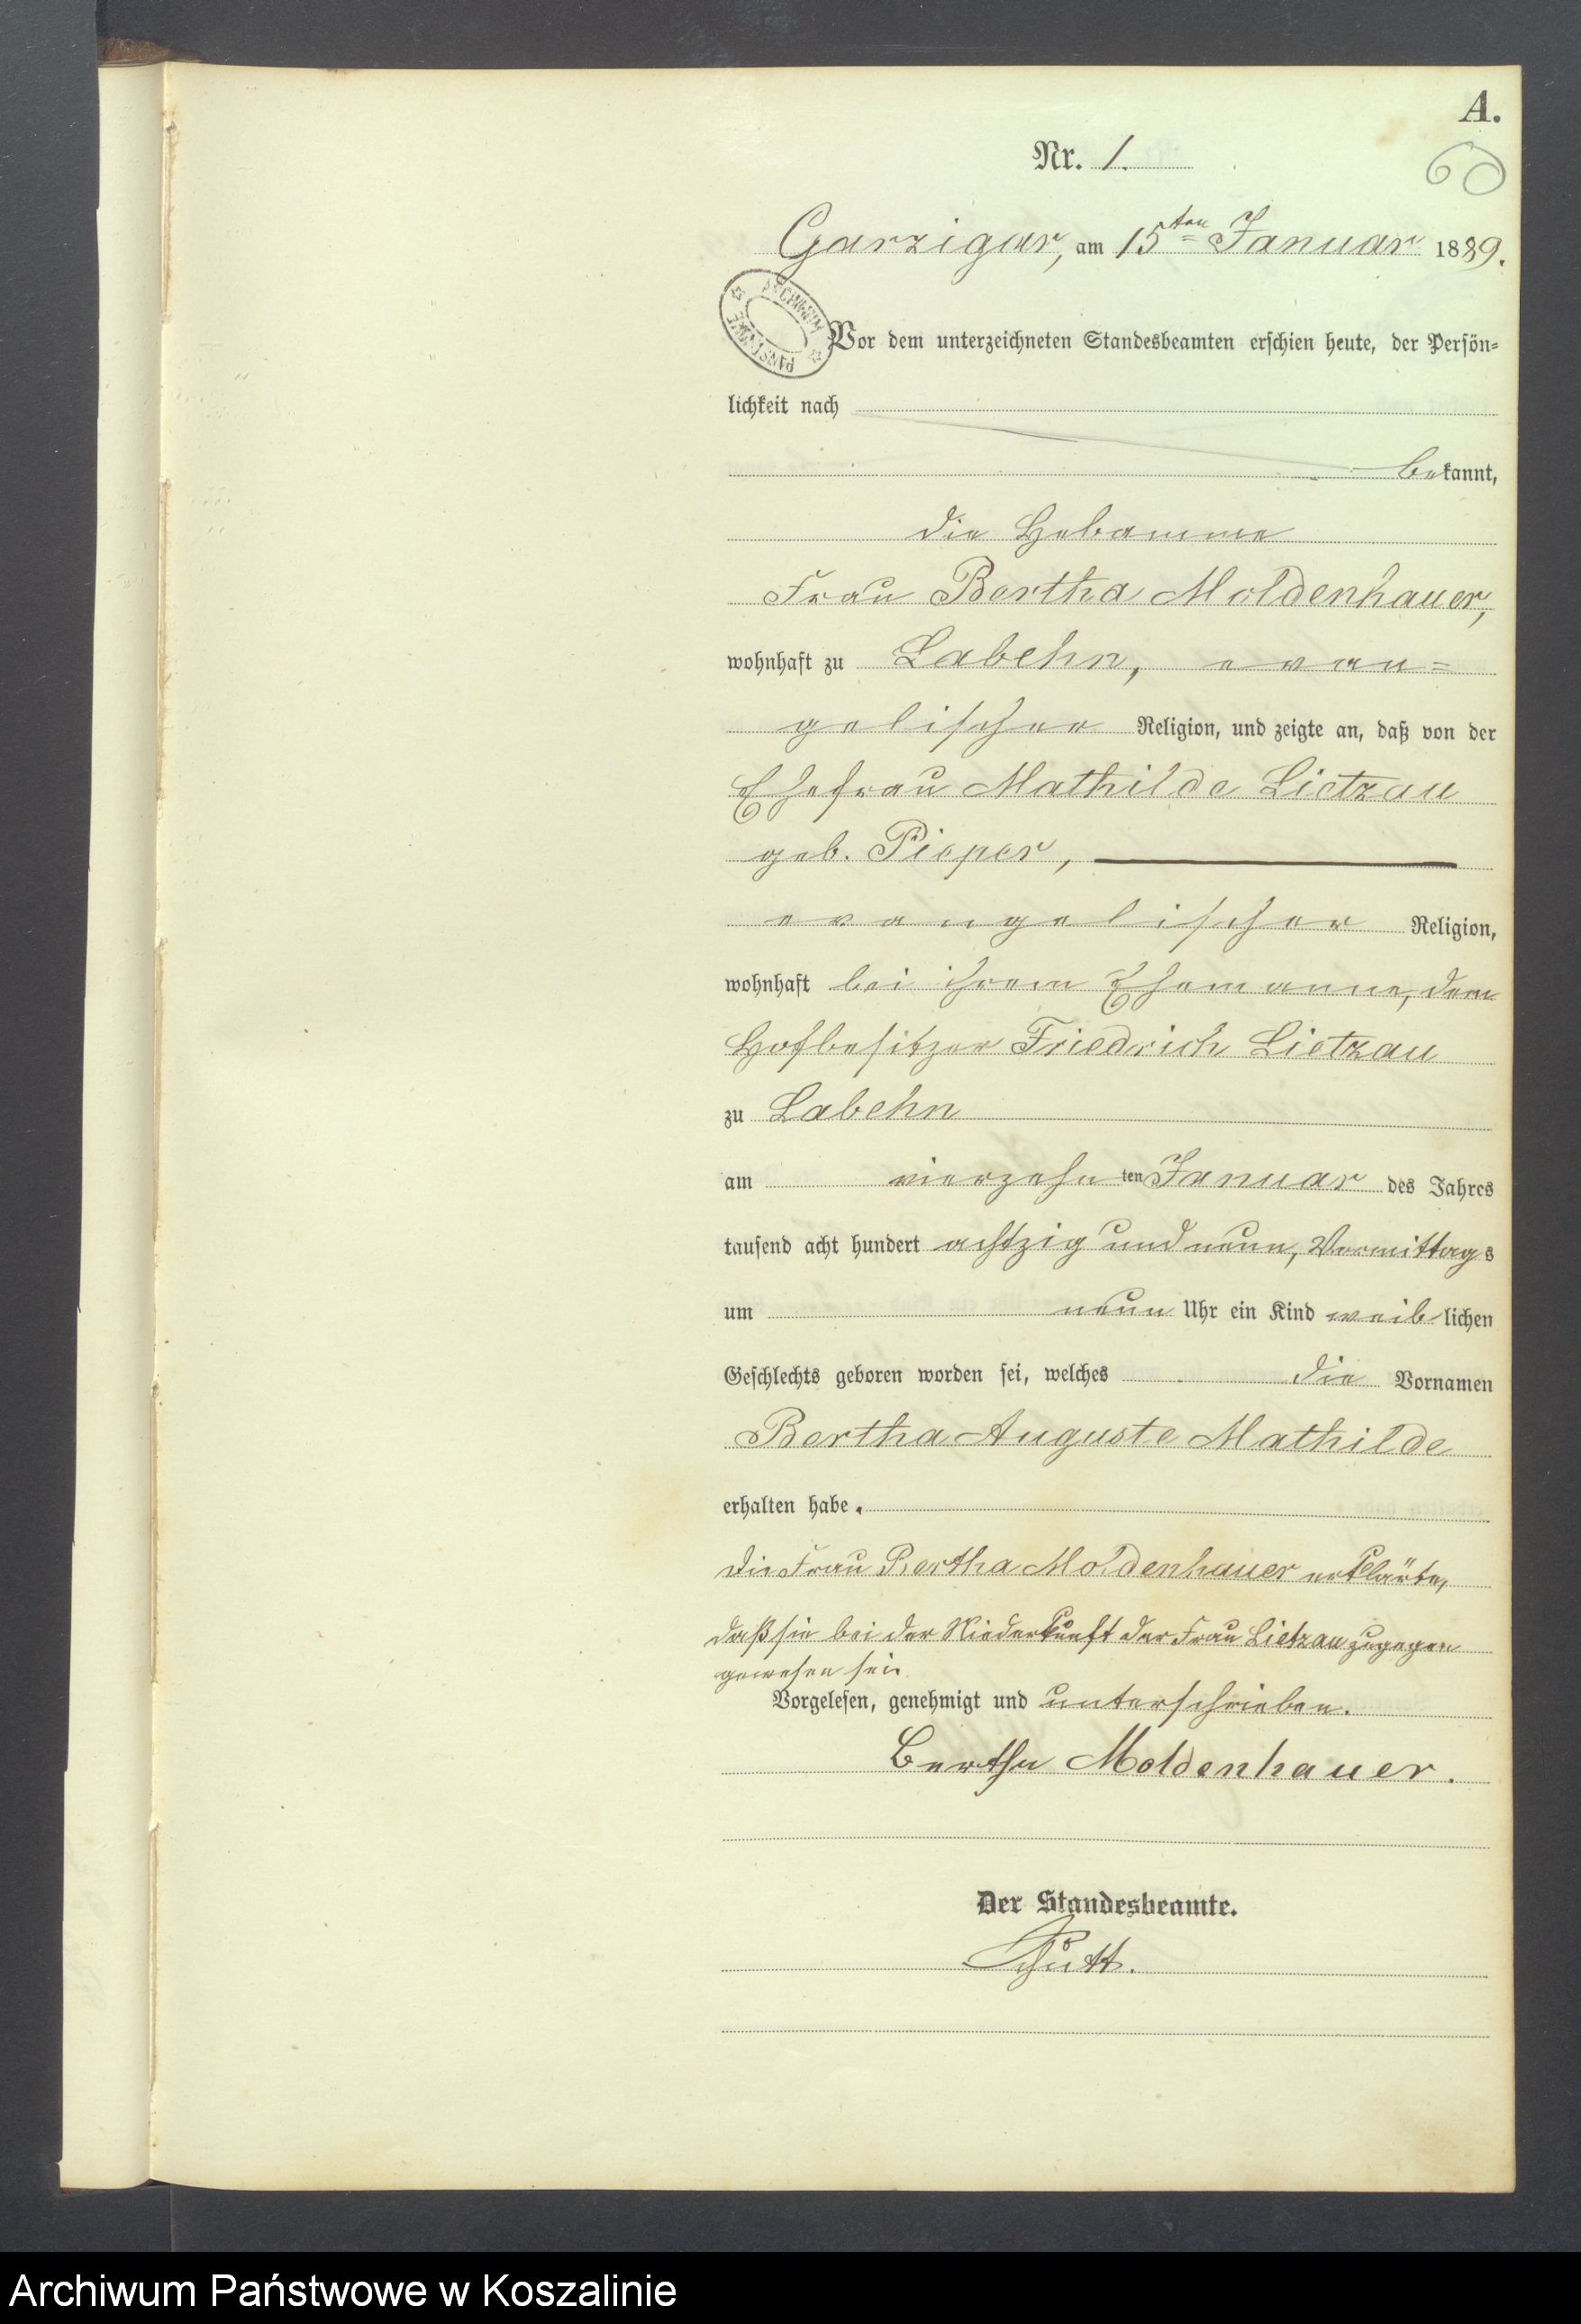 A.
Nr. 1.
60
Garzigar, am 15ten Januar 1889.
ARCHIWUM PAŃSTWOWE
Vor dem unterzeichneten Standesbeamten erschien heute, der Persön=
lichkeit nach
bekannt,
die Hebamme
Frau Bertha Moldenhauer,
wohnhaft zu Labehn, evan=
gelischer Religion, und zeigte an, daß von der
Ehefrau Mathilde Lietzau
geb. Pieper,
evangelischer Religion,
wohnhaft bei ihrem Ehemanne, dem
Hofbesitzer Friedrich Lietzau
zu Labehn
am vierzehnten Januar des Jahres
tausend acht hundert achtzig und neun, Vormittags
um neun Uhr ein Kind weiblichen
Geschlechts geboren worden sei, welches die Vornamen
Bertha Auguste Mathilde
erhalten habe.
Die Frau Bertha Moldenhauer erklärte,
daß sie bei der Niederkunft der Frau Lietzau zugegen
gewesen sei.
Vorgelesen, genehmigt und unterschrieben.
Bertha Moldenhauer.
Der Standesbeamte.
Archiwum Państwowe w Koszalinie